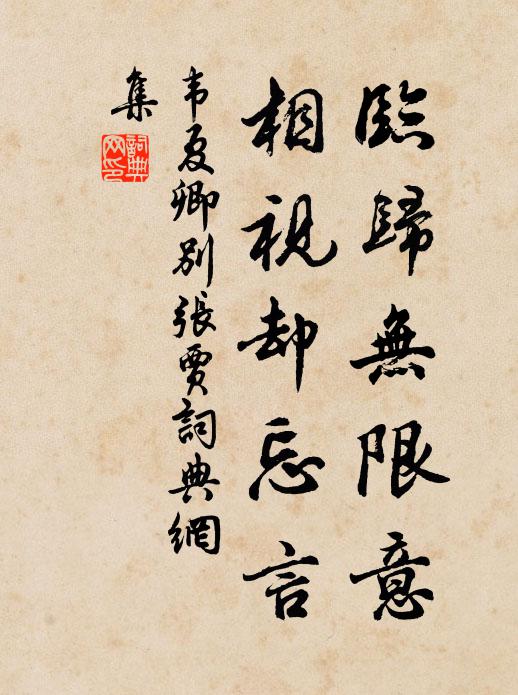 臨歸無限意
相視却忘言
韦夏卿別張賈詞典網
集
詞典
网印